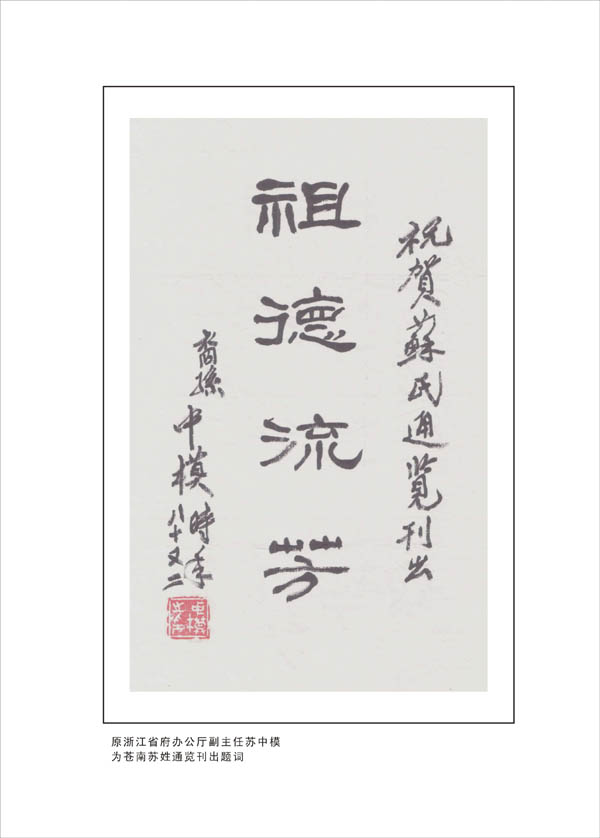 祝賀蘇氏通覧刊出
祖德流芳
裔孫中模時年
八十又二
原浙江省府办公厅副主任苏中模
为苍南苏姓通览刊出题词